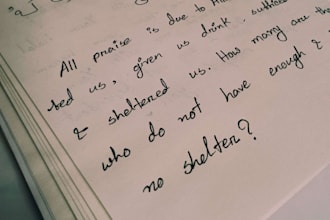 All praise is due to
fed us, given us drink,
& sheltered us. How many are the
who do not have enough &
no shelter?